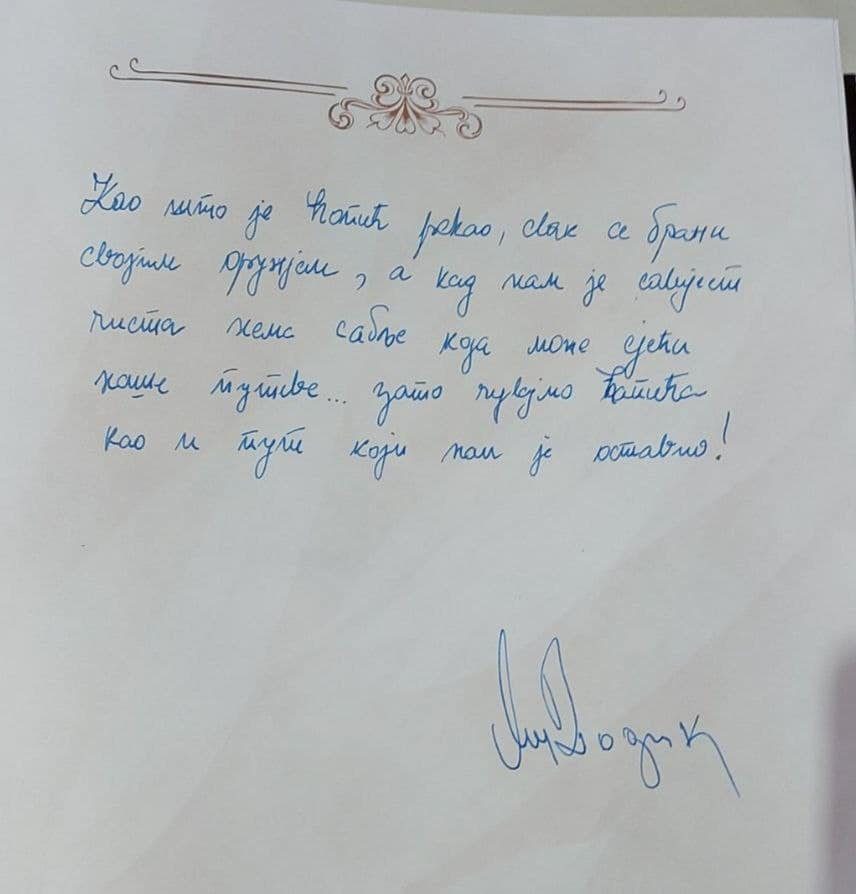 Као што је Ћопић рекао, свак се брани
својим оружјем, а кад нам је савјест
чиста нема сабље која може сјећи
наше путеве... зато чувајмо Ћопића
као и пут који нам је оставио!
Додик